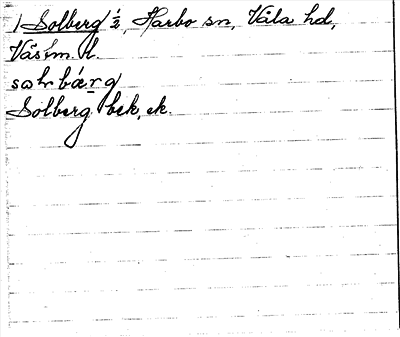 1) Solberg ½, Harbo sn, Våla hd,
Västm. l.
sωlrbǽrg
Solberg bek, ek.